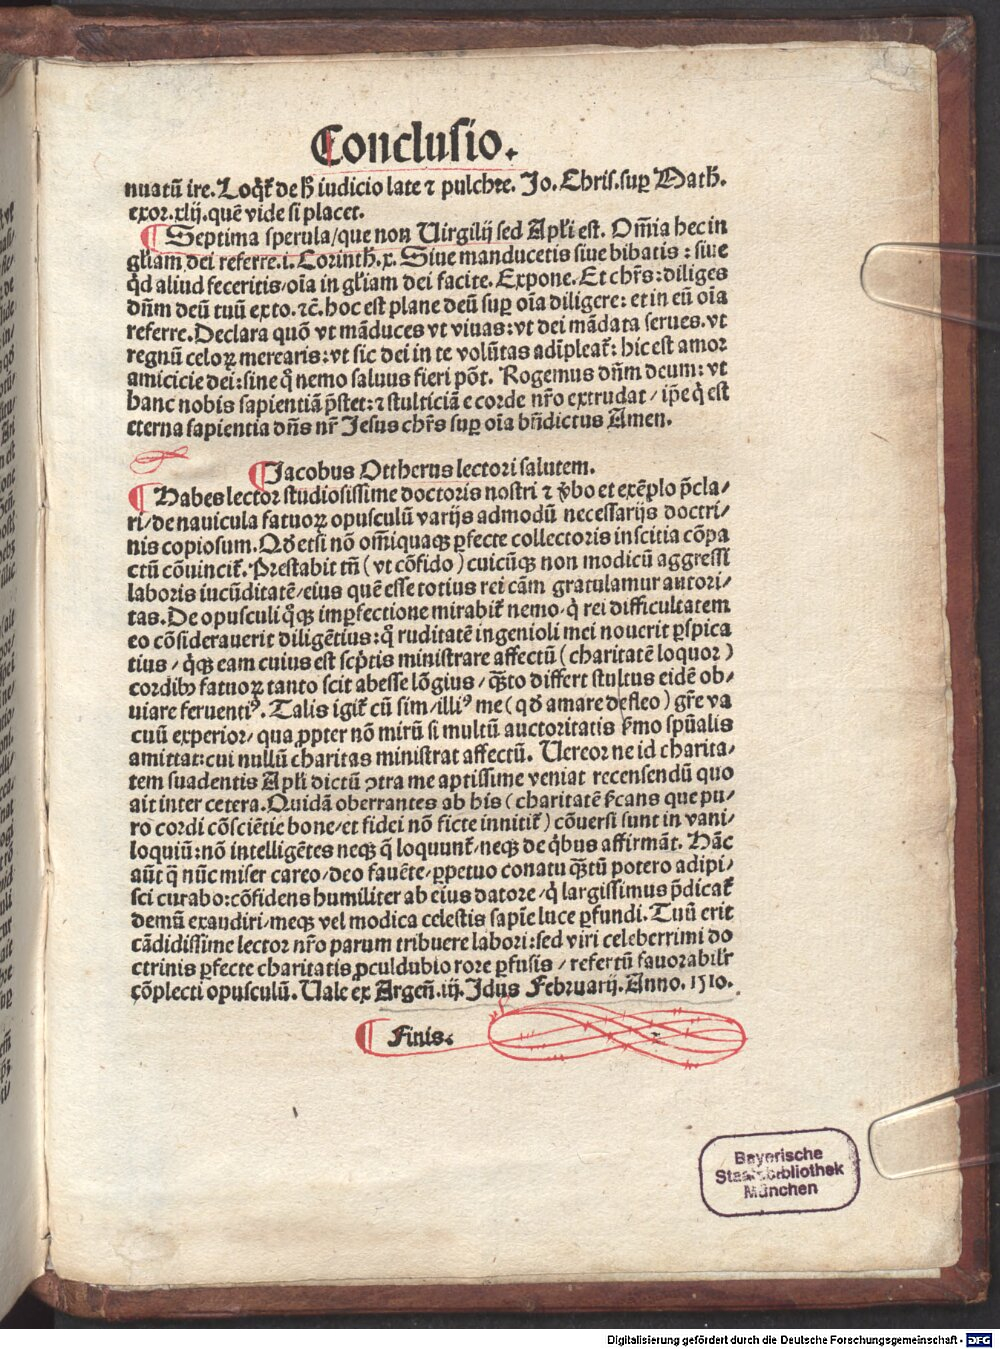 Conclusio.
nuatū ire. Loqr̄ de ħ iudicio late ⁊ pulchre. Jo. Chris. suꝑ Math.
exor. xlij. quē vide si placet.
¶ Septima sperula/que non Virgilij sed Apl'i est. Om̄ia hec in
gl'iam dei referre. i. Corinth. x. Siue manducetis siue bibatis : siue
qd̄ aliud feceritis/oīa in gl'iam dei facite. Expone. Et chr̄s: diliges
dn̄m deū tuū ex to. ⁊c̄. hoc est plane deū suꝑ oīa diligere: et in eū oīa
referre. Declara quō vt māduces vt viuas: vt dei mādata serues. vt
regnū celoꝝ merearis: vt sic dei in te volūtas adīpleat̄: hic est amor
amicicie dei: sine q̄ nemo saluus fieri pōt. Rogemus dn̄m deum: vt
hanc nobis sapientiā p̄stet: ⁊ stulticiā e corde nr̄o extrudat/ip̄e q̇ est
eterna sapientia dn̄s nr̄ Jesus chr̄s suꝑ oīa bn̄dictus Amen.
¶ Jacobus Ottherus lectori salutem.
¶ Habes lector studiosissime doctoris nostri ⁊ v̄bo et exēplo p̄cla/
ri/de nauicula fatuoꝝ opusculū varijs admodū necessarijs doctri/
nis copiosum. Qd̄ etsi nō om̄iquaqꝫ ꝑfecte collectoris inscitia cōpa
ctū cōuincit̄. Prestabit tn̄ (vt cōfido) cuicūqꝫ non modicū aggressi
laboris iucūditatē/eius quē esse totius rei cām gratulamur autori/
tas. De opusculi q̇qꝫ imꝑfectione mirabit̄ nemo/q̇ rei difficultatem
eo cōsiderauerit diligētius: q̇ ruditatē ingenioli mei nouerit ꝑspica
tius/q̇qꝫ eam cuius est scp̄tis ministrare affectū (charitatē loquor)
cordibꝰ fatuoꝝ tanto scit abesse lōgius/qꝫto differt stultus eidē ob/
uiare feruentiꝰ. Talis igit̄ cū sim/illiꝰ me (qd̄ amare defleo) gr̄e va
cuū experior/qua ꝓpter nō mirū si multū auctoritatis ẜmo spūalis
amittat: cui nullū charitas ministrat affectū. Vereor ne id charita/
tem suadentis Apl'i dictū ↄtra me aptissime veniat recensendū quo
ait inter cetera. Quidā oberrantes ab his (charitatē ẜcans que pu/
ro cordi cōsciētie bone/et fidei nō ficte innitit̄) cōuersi sunt in vani/
loquiū: nō intelligētes neqꝫ q̄ loquunt̄/neqꝫ de q̇bus affirmāt. Hāc
aūt q̄ nūc miser careo/deo fauēte/ꝑpetuo conatu qꝫtū potero adipi/
sci curabo: cōfidens humiliter ab eius datore/q̇ largissimus p̄dicat̄
demū exaudiri/meqꝫ vel modica celestis sapīe luce ꝑfundi. Tuū erit
cādidissime lector nr̄o parum tribuere labori: sed viri celeberrimi do
ctrinis ꝑfecte charitatis ꝓculdubio rore ꝑfusis/refertū fauorabil'r
cōplecti opusculū. Vale ex Argeñ. iij. Jdus Februarij. Anno. 1510.
¶ Finis.
Bayerische
Staatsbibliothek
München
Digitalisierung gefördert durch die Deutsche Forschungsgemeinschaft - DFG